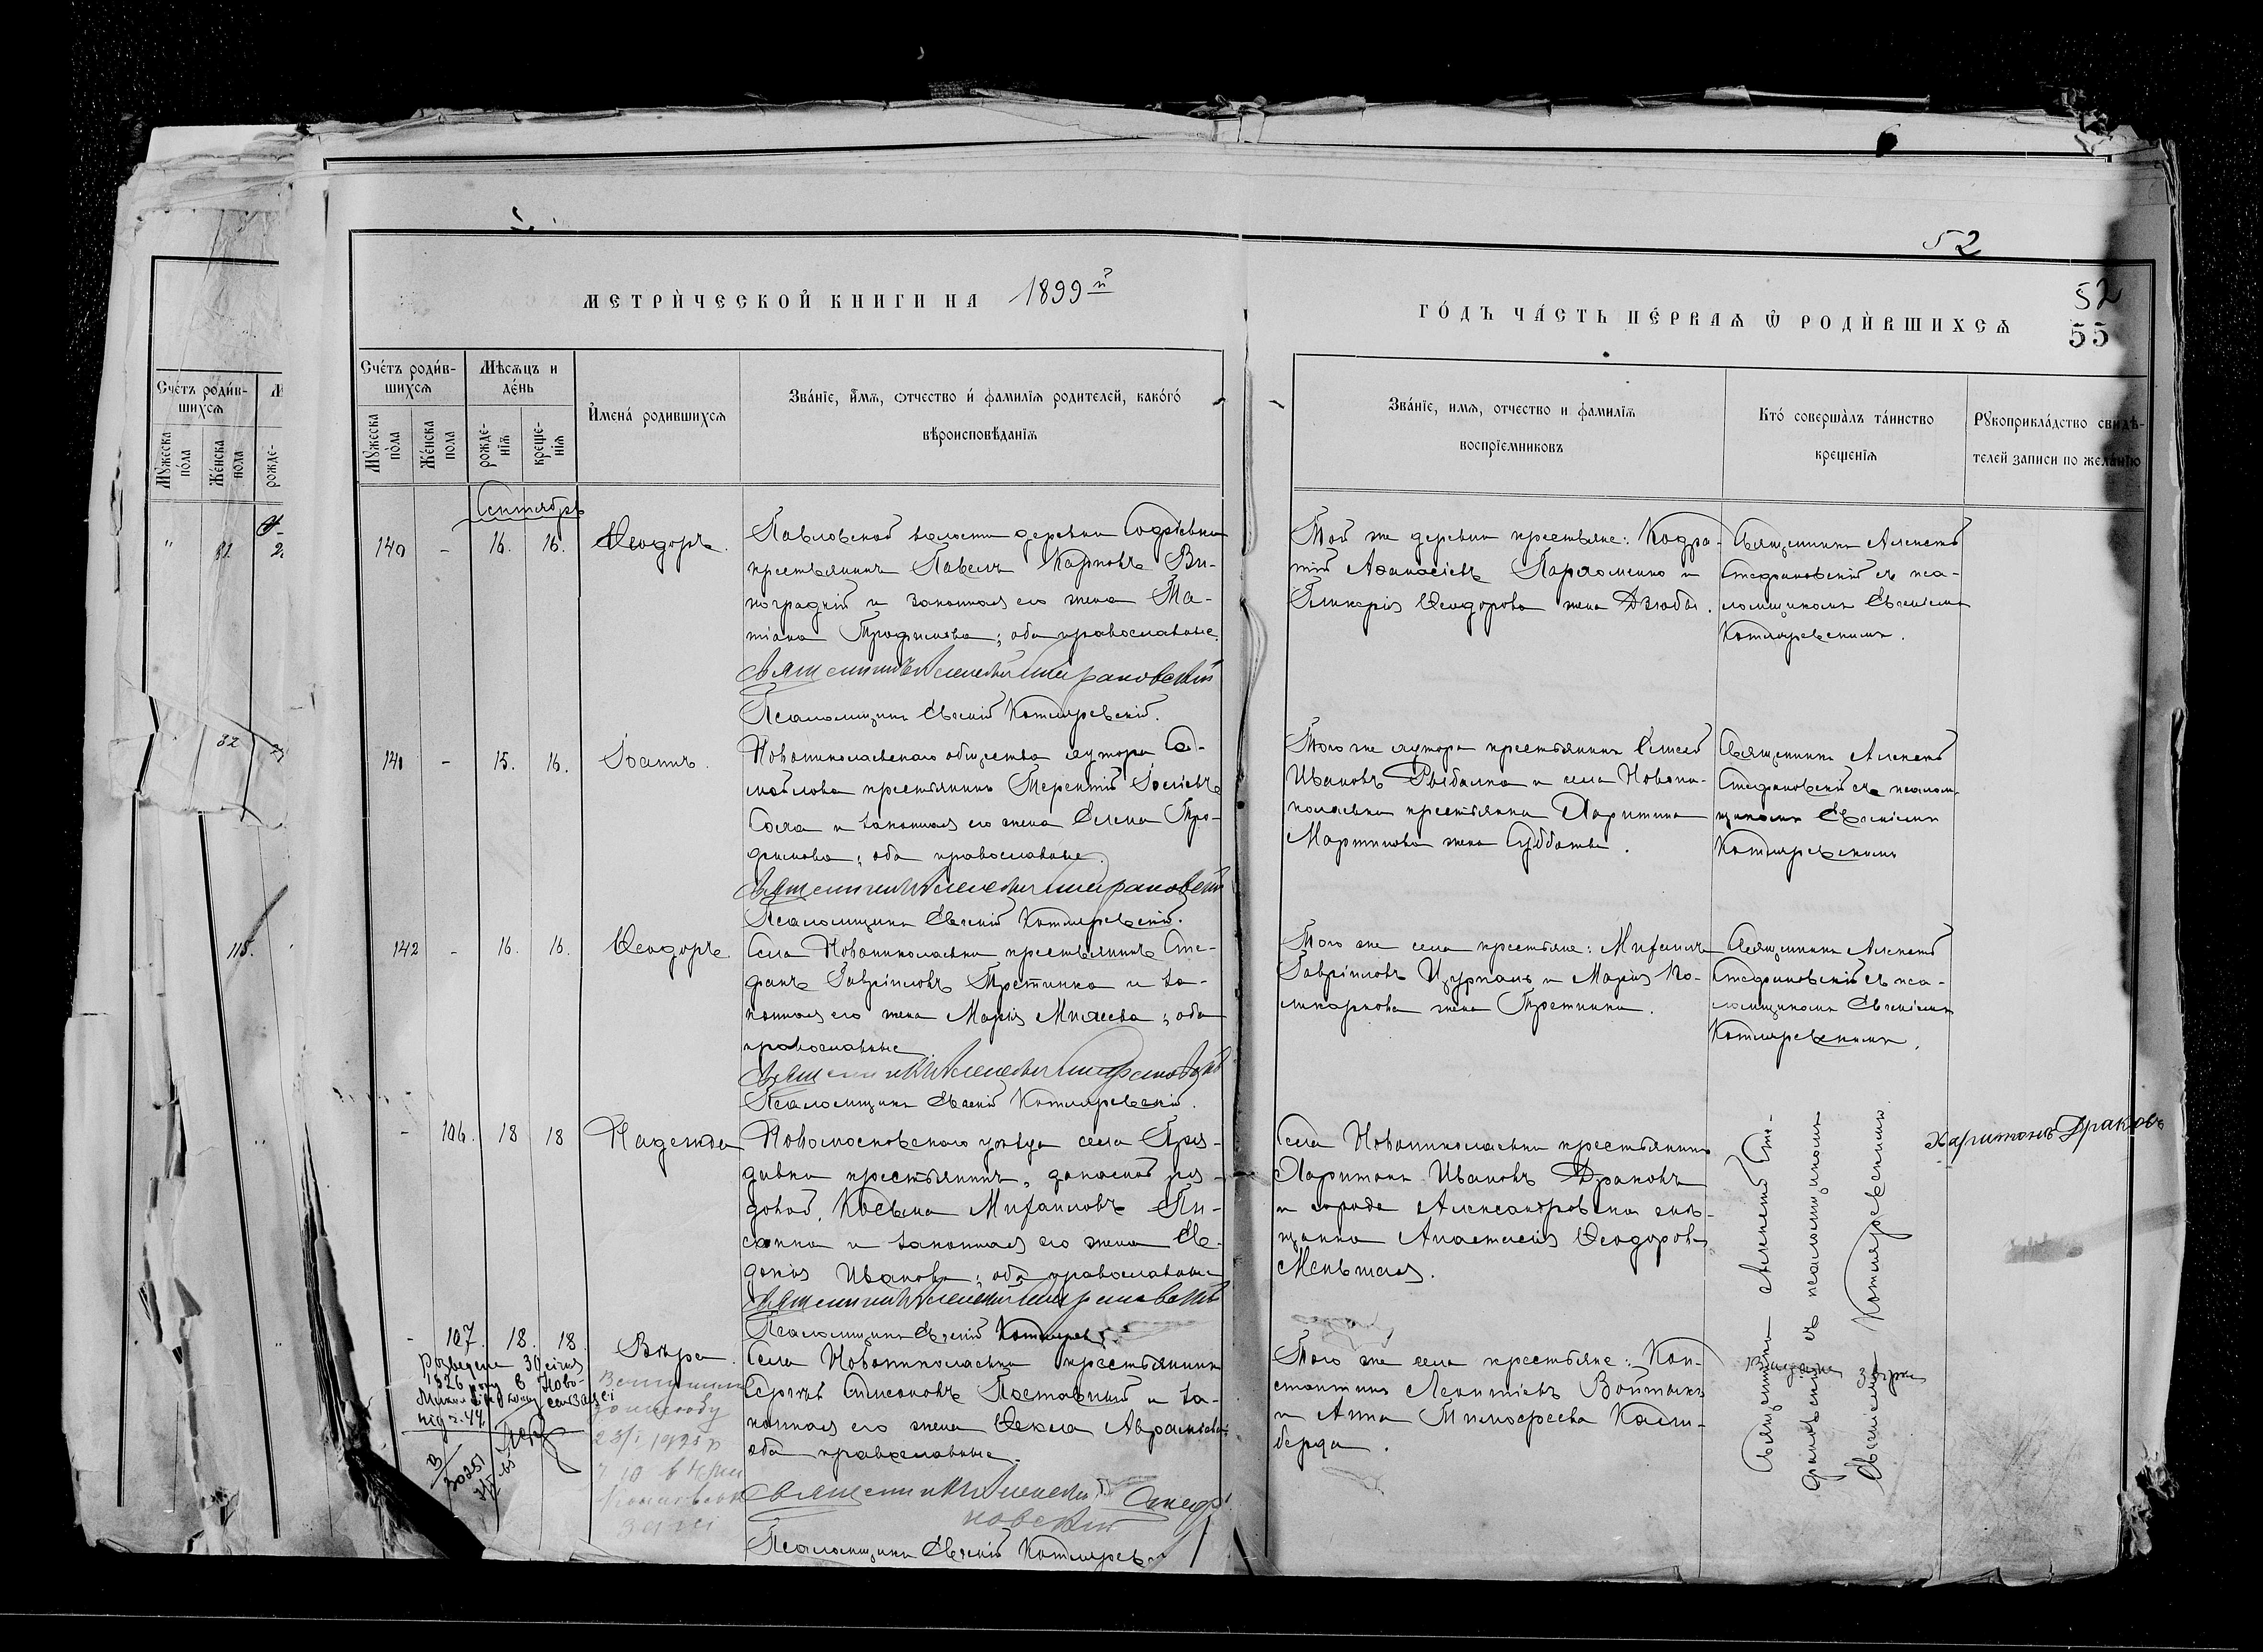 52
МЕТРИ́ЧЕСКОЙ КНИГИ НА 1899 й
ГО́ДЪ ЧА́СТЬ ПЕ́РВАЯ Ѿ РОДИ́ВШИХСЯ
52
55
Сче́тъ роди́в-
шихся
Мꙋжеска по́ла
Же́нска пола
рожде-
Сче́тъ роди́в-
шихся
Мѣсяцъ и
де́нь
Мꙋжеска по́ла
Же́нска пола
рожде-
нія
креще-
нія
И҆мена́ родившихся
Зва́ніе, и҆́мя, ѻтчество и҆ фамилія родителей, како́го
вѣроисповѣданія
Зва́ніе, имя, отчество и фамилія
воспріемниковъ
Кто́ соверша́лъ та́инство
крещенія
Рꙋкоприкла́дство свидѣ-
телей записи по жела́нію
Сентябрь
140 - 16. 16. Ѳеодоръ.
Павловской волости деревни Софіевки
крестьянинъ Павелъ Карповъ Ви-
ноградній и законная его жена Та-
тіана Трофимова; оба православные.
Священникъ Алексей Стефановскій
Псаломщикъ Евгеній Котляревскій.
Той же деревни крестьяне: Кодра-
тій Аѳанасіевъ Пархоменко и
Гликерія Ѳеодорова жена Дзюбы.
Священникъ Алексей
Стефановскій съ пса-
ломщикомъ Евгеніемъ
Котляревскимъ.
141 - 15. 16. Іоаннъ.
Новониколаевскаго общества хутора
крестьянинъ Терентій Іосіевъ
Соха и законная его жена Елена Тро-
фимова; оба православные.
Священникъ Алексей Стефановскій
Псаломщикъ Евгеній Котляревскій.
Того же хутора крестьянинъ Елисей
Ивановъ Рыбалка и села Новони-
колаевки крестьянка Харитина
Мартинова жена Субботы.
Священникъ Алексей
Стефановскій съ псалом-
щикомъ Евгеніемъ
Котляревскимъ
142 - 16. 16. Ѳеодоръ.
Села Новониколаевки крестьянинъ Сте-
фанъ Гавріиловъ Третинка и за-
конная его жена Марія Михеева; оба
православные
Священникъ Алексей Стефановскій
Псаломщикъ Евгеній Котляревскій.
Того же села крестьяне: Михаилъ
Гавріиловъ Цурканъ и Марія По-
ликарпова жена Третинки.
Священникъ Алексей
Стефановскій съ пса-
ломщикомъ Евгеніемъ
Котляревскимъ.
- 106. 18 18 Надежда
Новомосковскаго уѣзда села
крестьянинъ, запасной ря-
довой, Косьма Михаиловъ Пи-
и законная его жена Ев-
докія Иванова; оба православные
Священникъ Алексей Стефановскій
Псаломщикъ Евгеній Котляревскій
Села Новониколаевки крестьянинъ
Харитонъ Ивановъ Драковъ
и города Александровска мѣ-
щанка Анастасія Ѳеодоровна
Меньшая.
Харитонъ Драковъ
- 107. 18. 18. Вѣра.
Села Новониколаевки крестьянинъ
Сергѣй Симеоновъ Поставный и за-
конная его жена Ѳекла Авраміева;
оба православные.
Священникъ Алексей Стефа-
новскій
Псаломщикъ Евгеній Котляревскій
Того же села крестьяне: Кон-
стантинъ Леонтіевъ Войтыкъ
и Анна Тимоѳеева
Священникъ Алексей Сте-
фановскій съ псаломщикомъ
Евгеніемъ Котляревскимъ
Розведена 30 січня
1926 року в Ново-
під ч. 44
31
32
115.